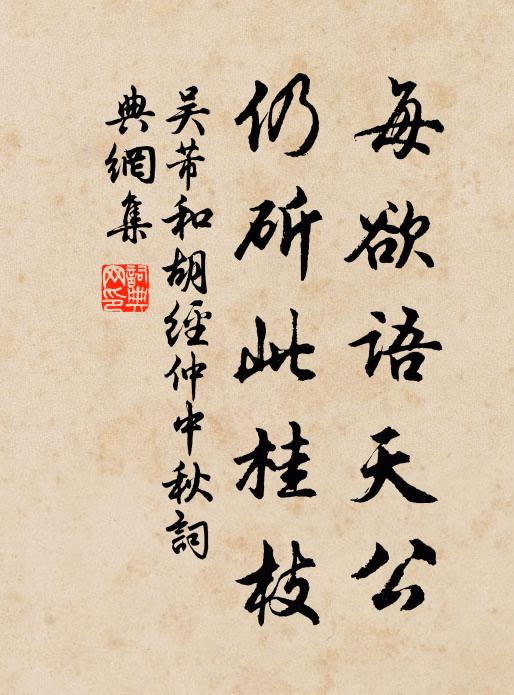 每欲語天公
仍斫此桂枝
吴芾和胡經仲中秋詞
典網集
詞典
网印